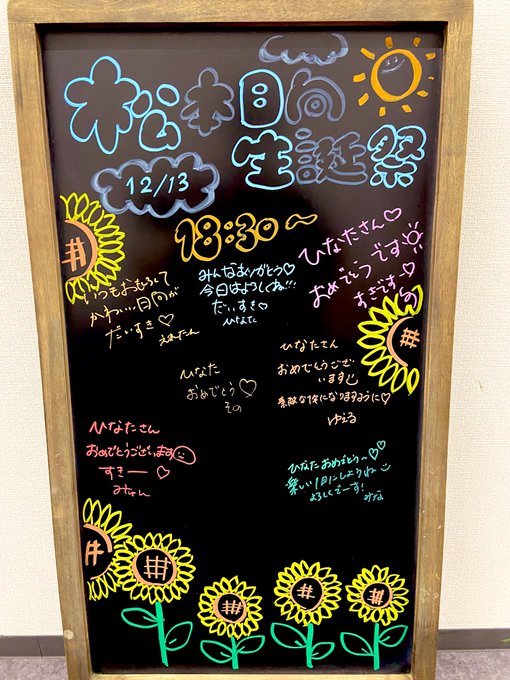 松本日向
生誕祭
12/13
18:30〜
ひなたさん♡
おめでとうです
すきです♡
みんなありがとう♡
今日はよろしくね!!!
だいすき♡
ひなた
いつもおもしろくて
かわいい日向が
だいすき♡
ひなた
おめでとう♡
その
ひなたさん
おめでとうござい
います
素敵な1年になりますように♡
ゆえる
ひなたさん
おめでとうございます
すきー♡
ひなたおめでとう〜♡♡
楽しい1日にしようね
よろしくでーす!